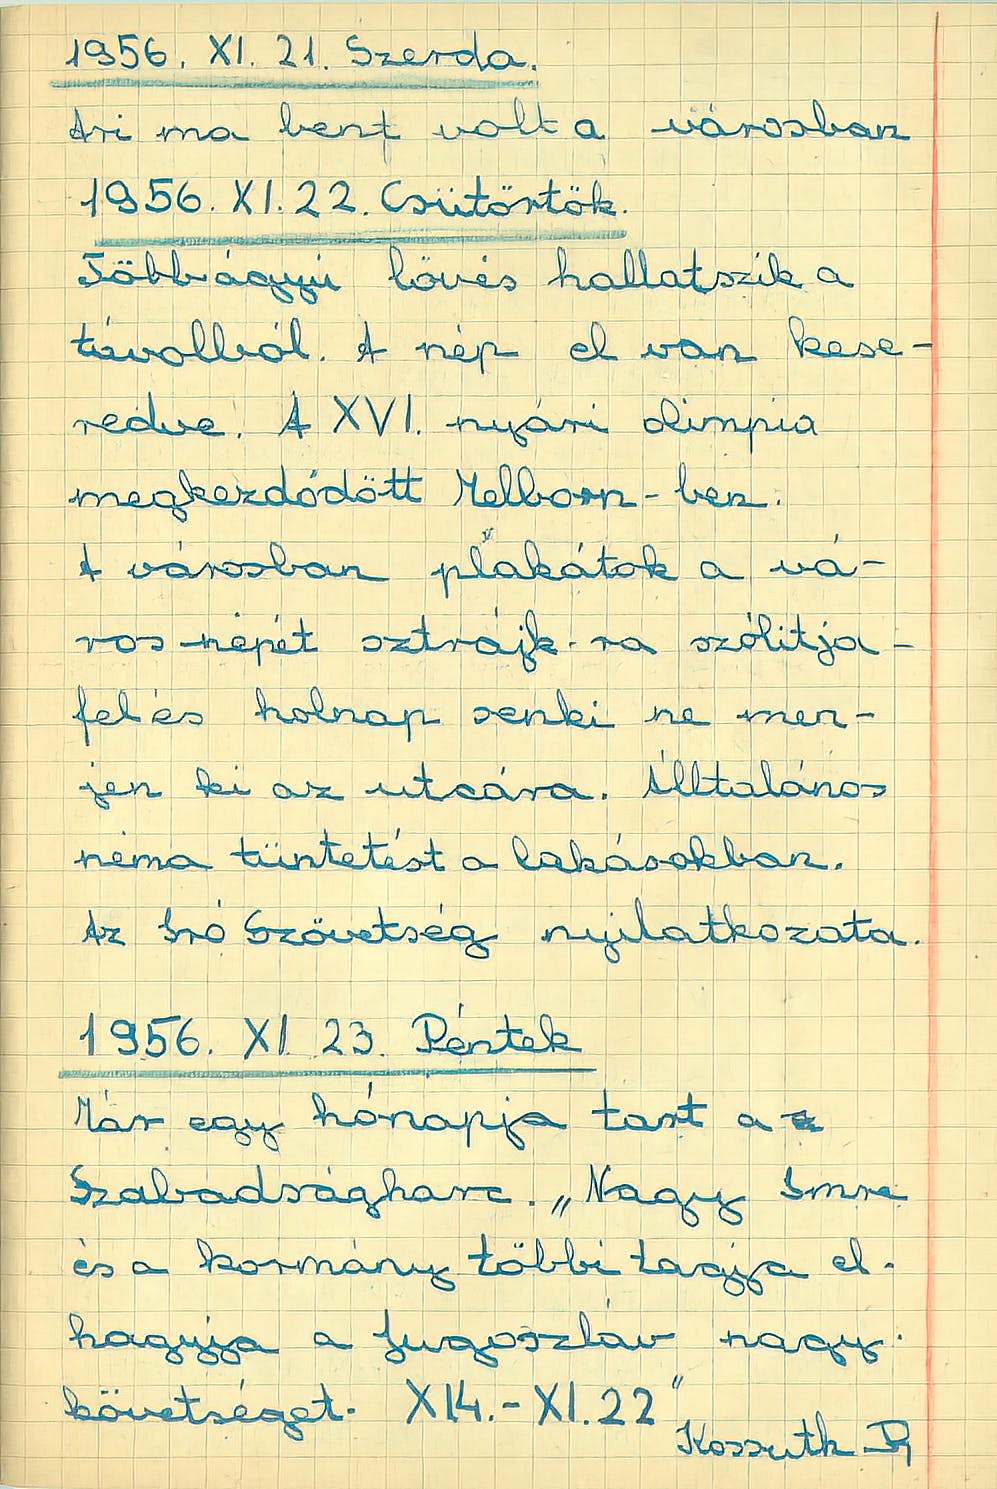 1956. XI. 21. Szerda.
Ari ma bent volt a városban
1956. XI. 22. Csütörtök.
Több ágyú lövés hallatszik a
távolból. A nép el van kese-
redve. A XVI. nyári olimpia
megkezdődött Melborn-ben.
A városban plakátok a vá-
ros népét sztrájk-ra szólitja-
fel és holnap senki ne men-
jen ki az utcára. Álltalános
néma tüntetést a lakásokban.
Az Iró Szövetség nyilatkozata.
1956. XI 23. Péntek
Már egy hónapja tart a
Szabadságharc. „Nagy Imre
és a kormány többi tagja el-
hagyja a Jugoszláv nagy-
követséget. XI4.-XI.22"
Kossuth R